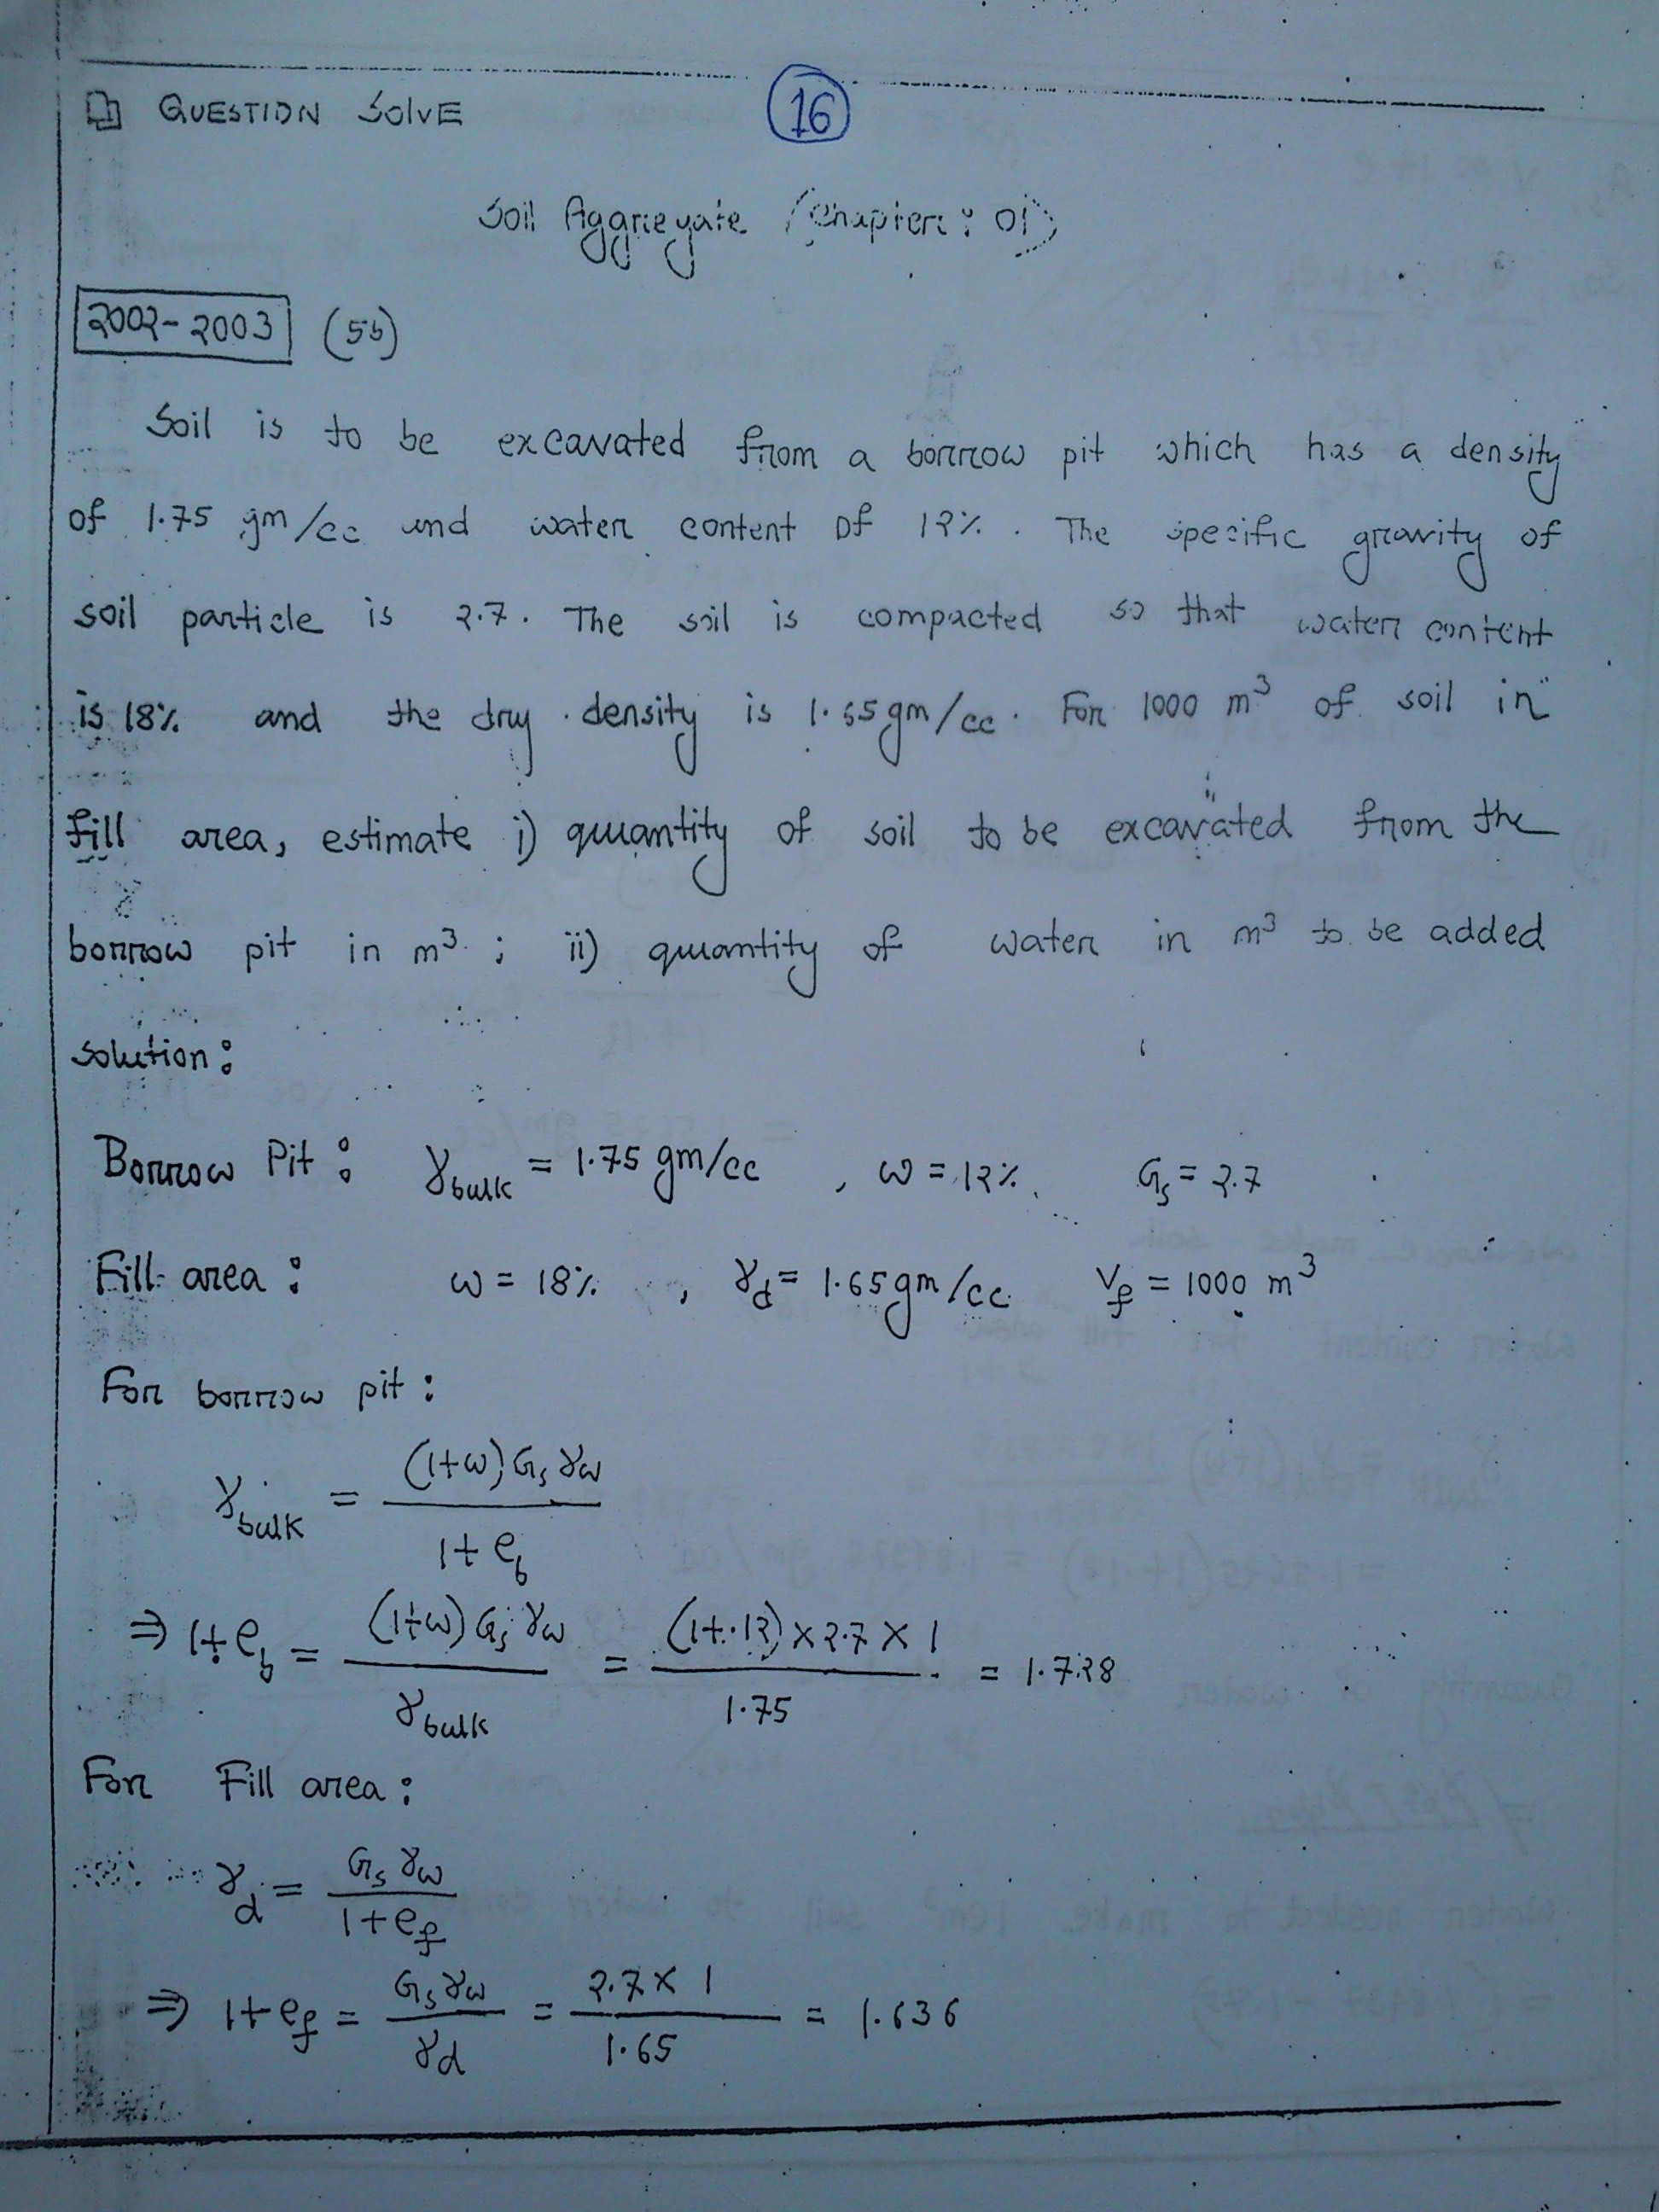 QUESTION SOLVE
16
Soil Aggregate (Chapter: 01)
2002-2003 (5b)
Soil is to be excavated from a borrow pit which has a density
of 1.75 gm/cc and water content of 12%. The specific gravity of
soil particle is 2.7. The soil is compacted so that water content
is 18% and the dry density is 1.65 gm/cc. For 1000 m³ of soil in
fill area, estimate i) quantity of soil to be excavated from the
borrow pit in m³; ii) quantity of water in m³ to be added
Solution:
Borrow Pit: γbulk = 1.75 gm/cc, ω = 12%, Gs = 2.7
Fill area: ω = 18%, γd = 1.65 gm/cc Vf = 1000 m³
For borrow pit:
γbulk = (1+ω) Gs γω / 1+eb
⇒ 1+eb = (1+ω) Gs γω / γbulk = (1+.12)×2.7×1 / 1.75 = 1.728
For Fill area:
γd = Gs γω / 1+ef
⇒ 1+ef = Gs γω / γd = 2.7×1 / 1.65 = 1.636